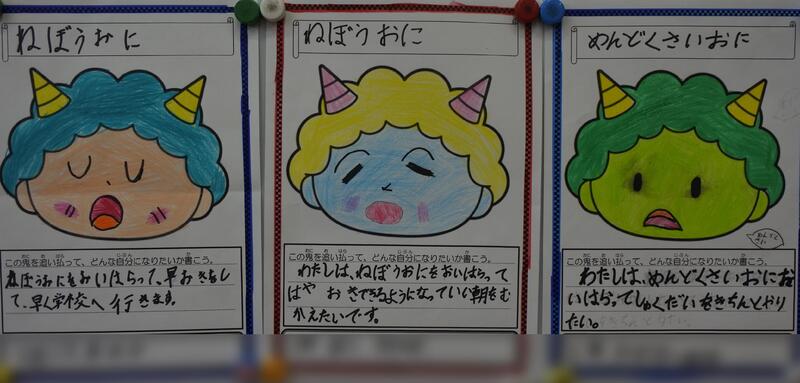 ねぼうおに
この鬼を追い払って、どんな自分になりたいか書こう。
ねぼうおにをおいはらって、早おきをし
て、早く学校へ行きます。
ねぼうおに
この鬼を追い払って、どんな自分になりたいか書こう。
わたしは、ねぼうおにをおいはらって
はやおきできるようになっていい朝をむ
かえたいです。
めんどくさいおに
めんどく
さい
この鬼を追い払って、どんな自分になりたいか書こう。
わたしは、めんどくさいおにお
いはらって、しゅくだいをきちんとやり
たい。